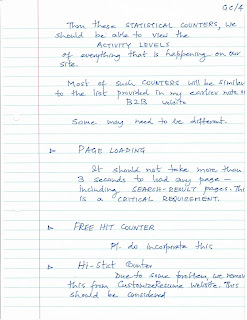 GC/4
Thru these STATISTICAL COUNTERS, we
should be able to view the
ACTIVITY LEVELS
of everything that is happening on our
site.
Most of such COUNTERS will be similar
to the list provided in my earlier note on
B2B website
Some may need to be different.
PAGE LOADING
It should not take more than
3 seconds to load any page -
including SEARCH-RESULT pages. This
is a "CRITICAL REQUIREMENT.
FREE HIT COUNTER
Pl. do incorporate this
Hi-Stat Counter
Due to some problem, we remove
this from CustomizeResume website. This
should be considered